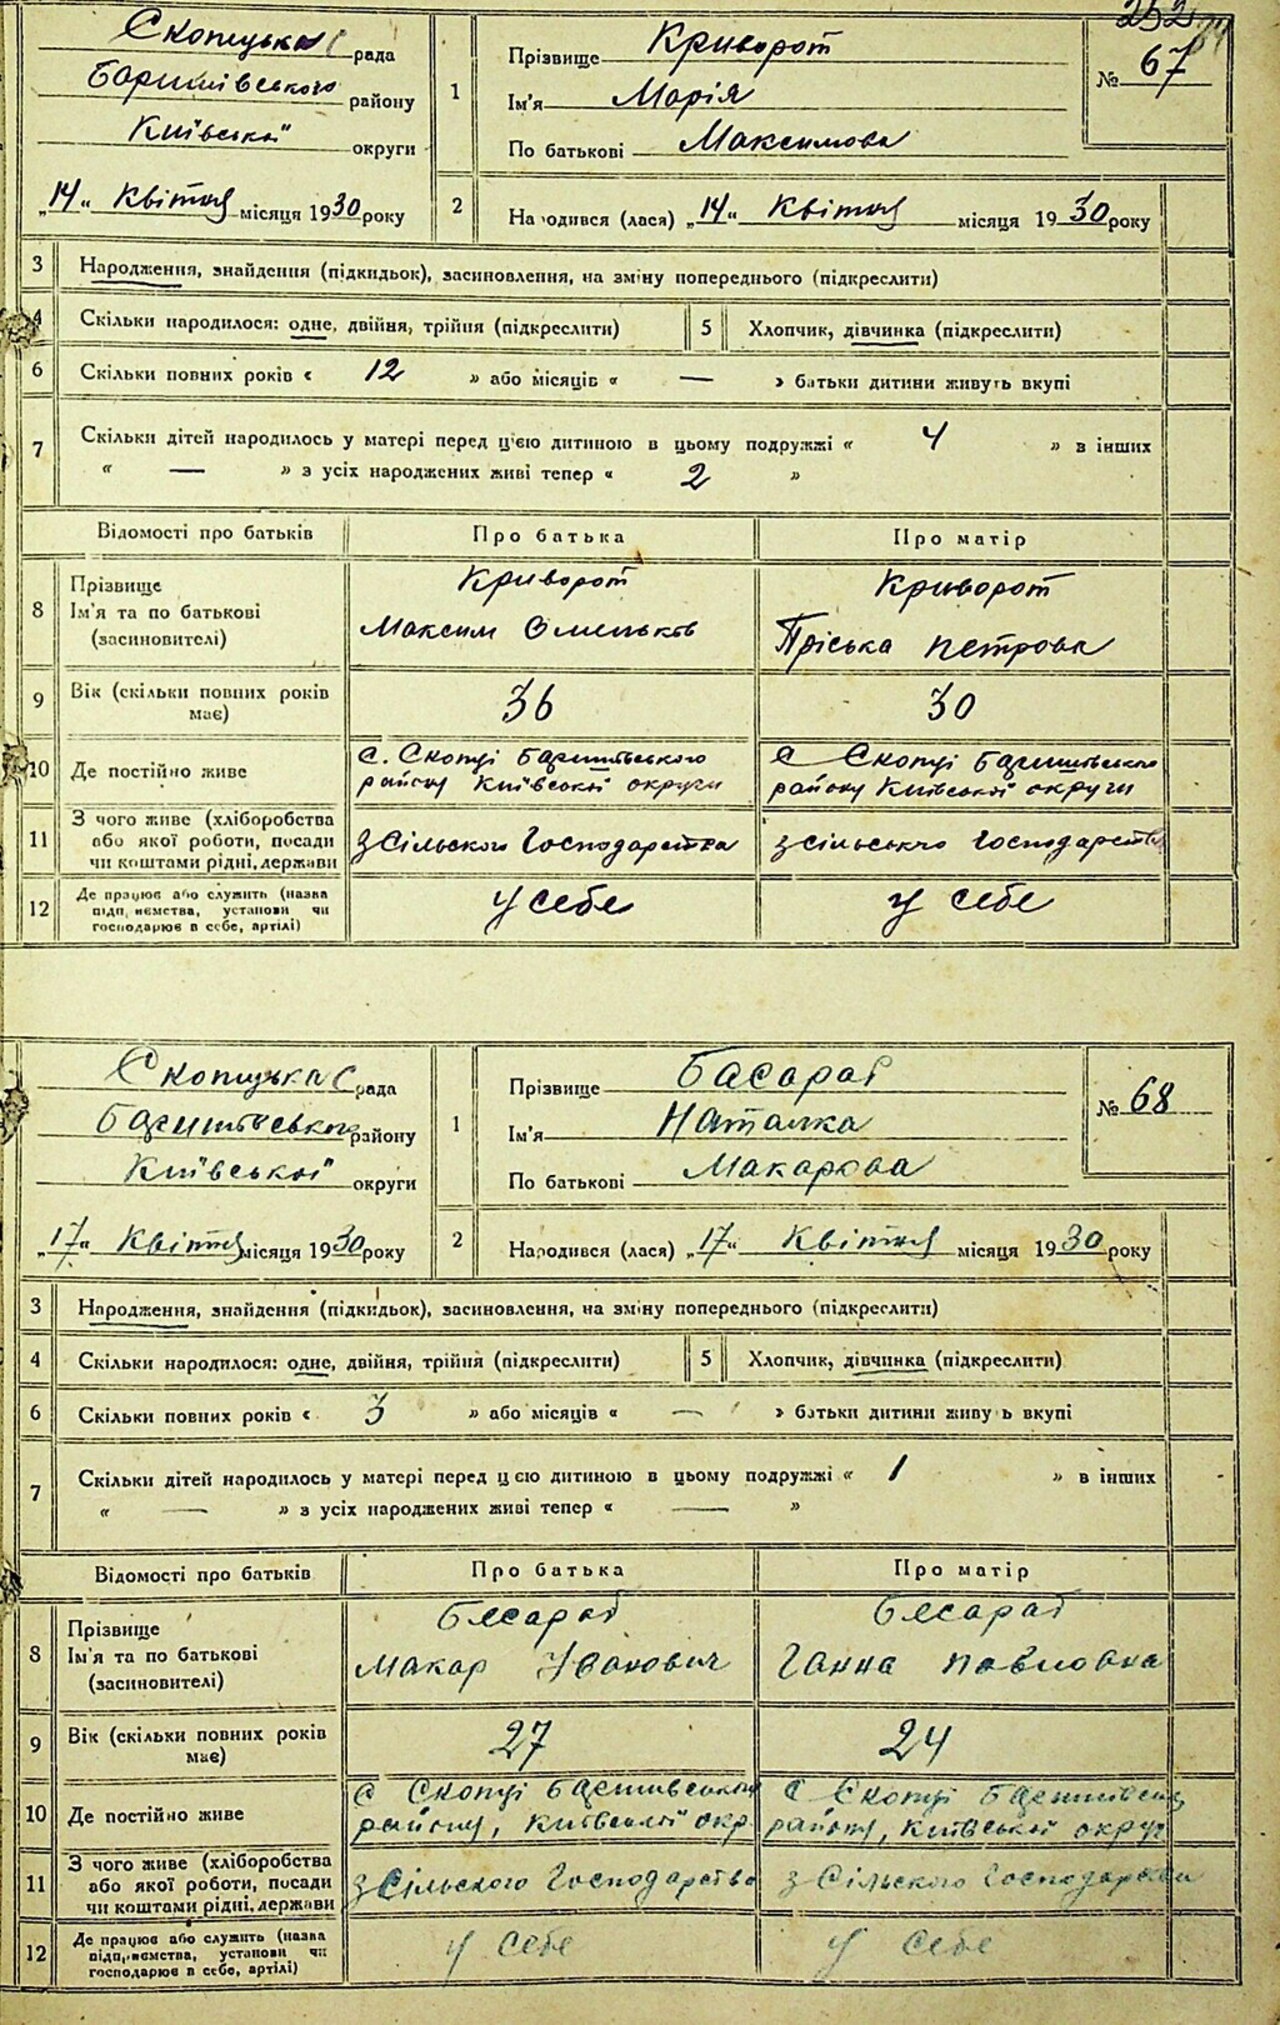 252
Скопецька с рада
Баришівського району
Київської округи
„14“ Квітня місяця 1930 року
1
Прізвище Криворот
Ім'я Марія
По батькові Максимова
№ 67
2
Народився (лася) „14“ Квітня місяця 1930 року
3 Народження, знайдення (підкидьок), засиновлення, на зміну попереднього (підкреслити)
4 Скільки народилося: одне, двійня, трійня (підкреслити) 5 Хлопчик, дівчинка (підкреслити)
6 Скільки повних років « 12 » або місяців « — » батьки дитини живуть вкупі
7 Скільки дітей народилось у матері перед ц'єю дитиною в цьому подружжі « 4 » в інших
« — » з усіх народжених живі тепер « 2 »
Відомості про батьків Про батька Про матір
8 Прізвище
Ім'я та по батькові
(засиновителі)
Криворот
Максим
Криворот
Пріська Петровн
9 Вік (скільки повних років
має)
36 30
10 Де постійно живе
С. Скопці Баришівського
району Київської округи
С Скопці Баришівського
району Київської округи
11 З чого живе (хліборобства
або якої роботи, посади
чи коштами рідні, держави
з Сільского Господарства
з сільського господарства
12 Де працює або служить (назва
підприємства, установи чи
господарює в себе, артілі)
у себе у себе
Скопецька с рада
Баришівського району
Київської округи
„17“ Квітня місяця 1930 року
1
Прізвище Басараб
Ім'я Наталка
По батькові Макарова
№ 68
2
Народився (лася) „17“ Квітня місяця 1930 року
3 Народження, знайдення (підкидьок), засиновлення, на зміну попереднього (підкреслити)
4 Скільки народилося: одне, двійня, трійня (підкреслити) 5 Хлопчик, дівчинка (підкреслити)
6 Скільки повних років « 3 » або місяців « — » батьки дитини живу ь вкупі
7 Скільки дітей народилось у матері перед ц єю дитиною в цьому подружжі « 1 » в інших
« — » з усіх народжених живі тепер « — »
Відомості про батьків Про батька Про матір
8 Прізвище
Ім'я та по батькові
(засиновителі)
Басараб
Макар Іванович
Басараб
Ганна Павловна
9 Вік (скільки повних років
має)
27 24
10 Де постійно живе
С Скопці Баришівського
району, Київської окр
С Скопці Баришівськ
району, Київської округ
11 З чого живе (хліборобства
або якої роботи, посади
чи коштами рідні, держави
з Сільского Господарства
з Сільского Господарства
12 Де працює або служить (назва
підприємства, установи чи
господарює в себе, артілі)
у себе у себе